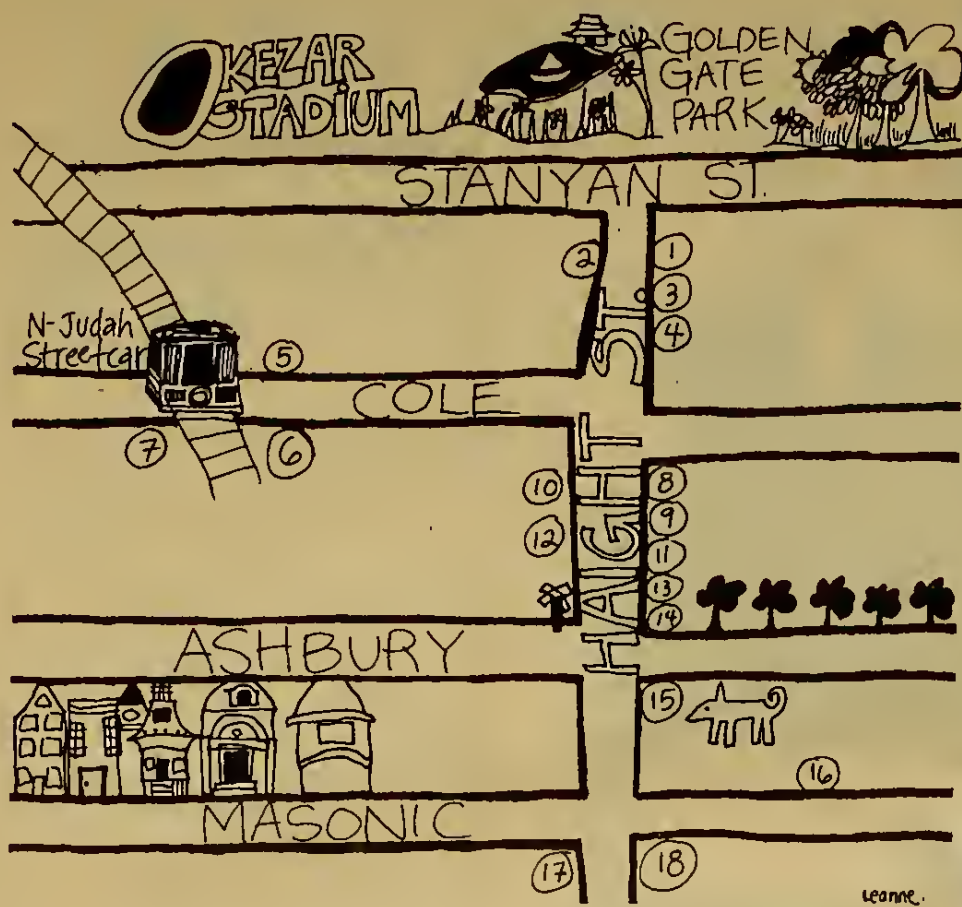 KEZAR
STADIUM
GOLDEN
GATE
PARK
STANYAN ST.
2
1
3
4
HAIGHT ST.
N-Judah
Streetcar
5
COLE
7
6
10
8
9
12
11
13
14
ASHBURY
15
16
MASONIC
17
18
Leanne.